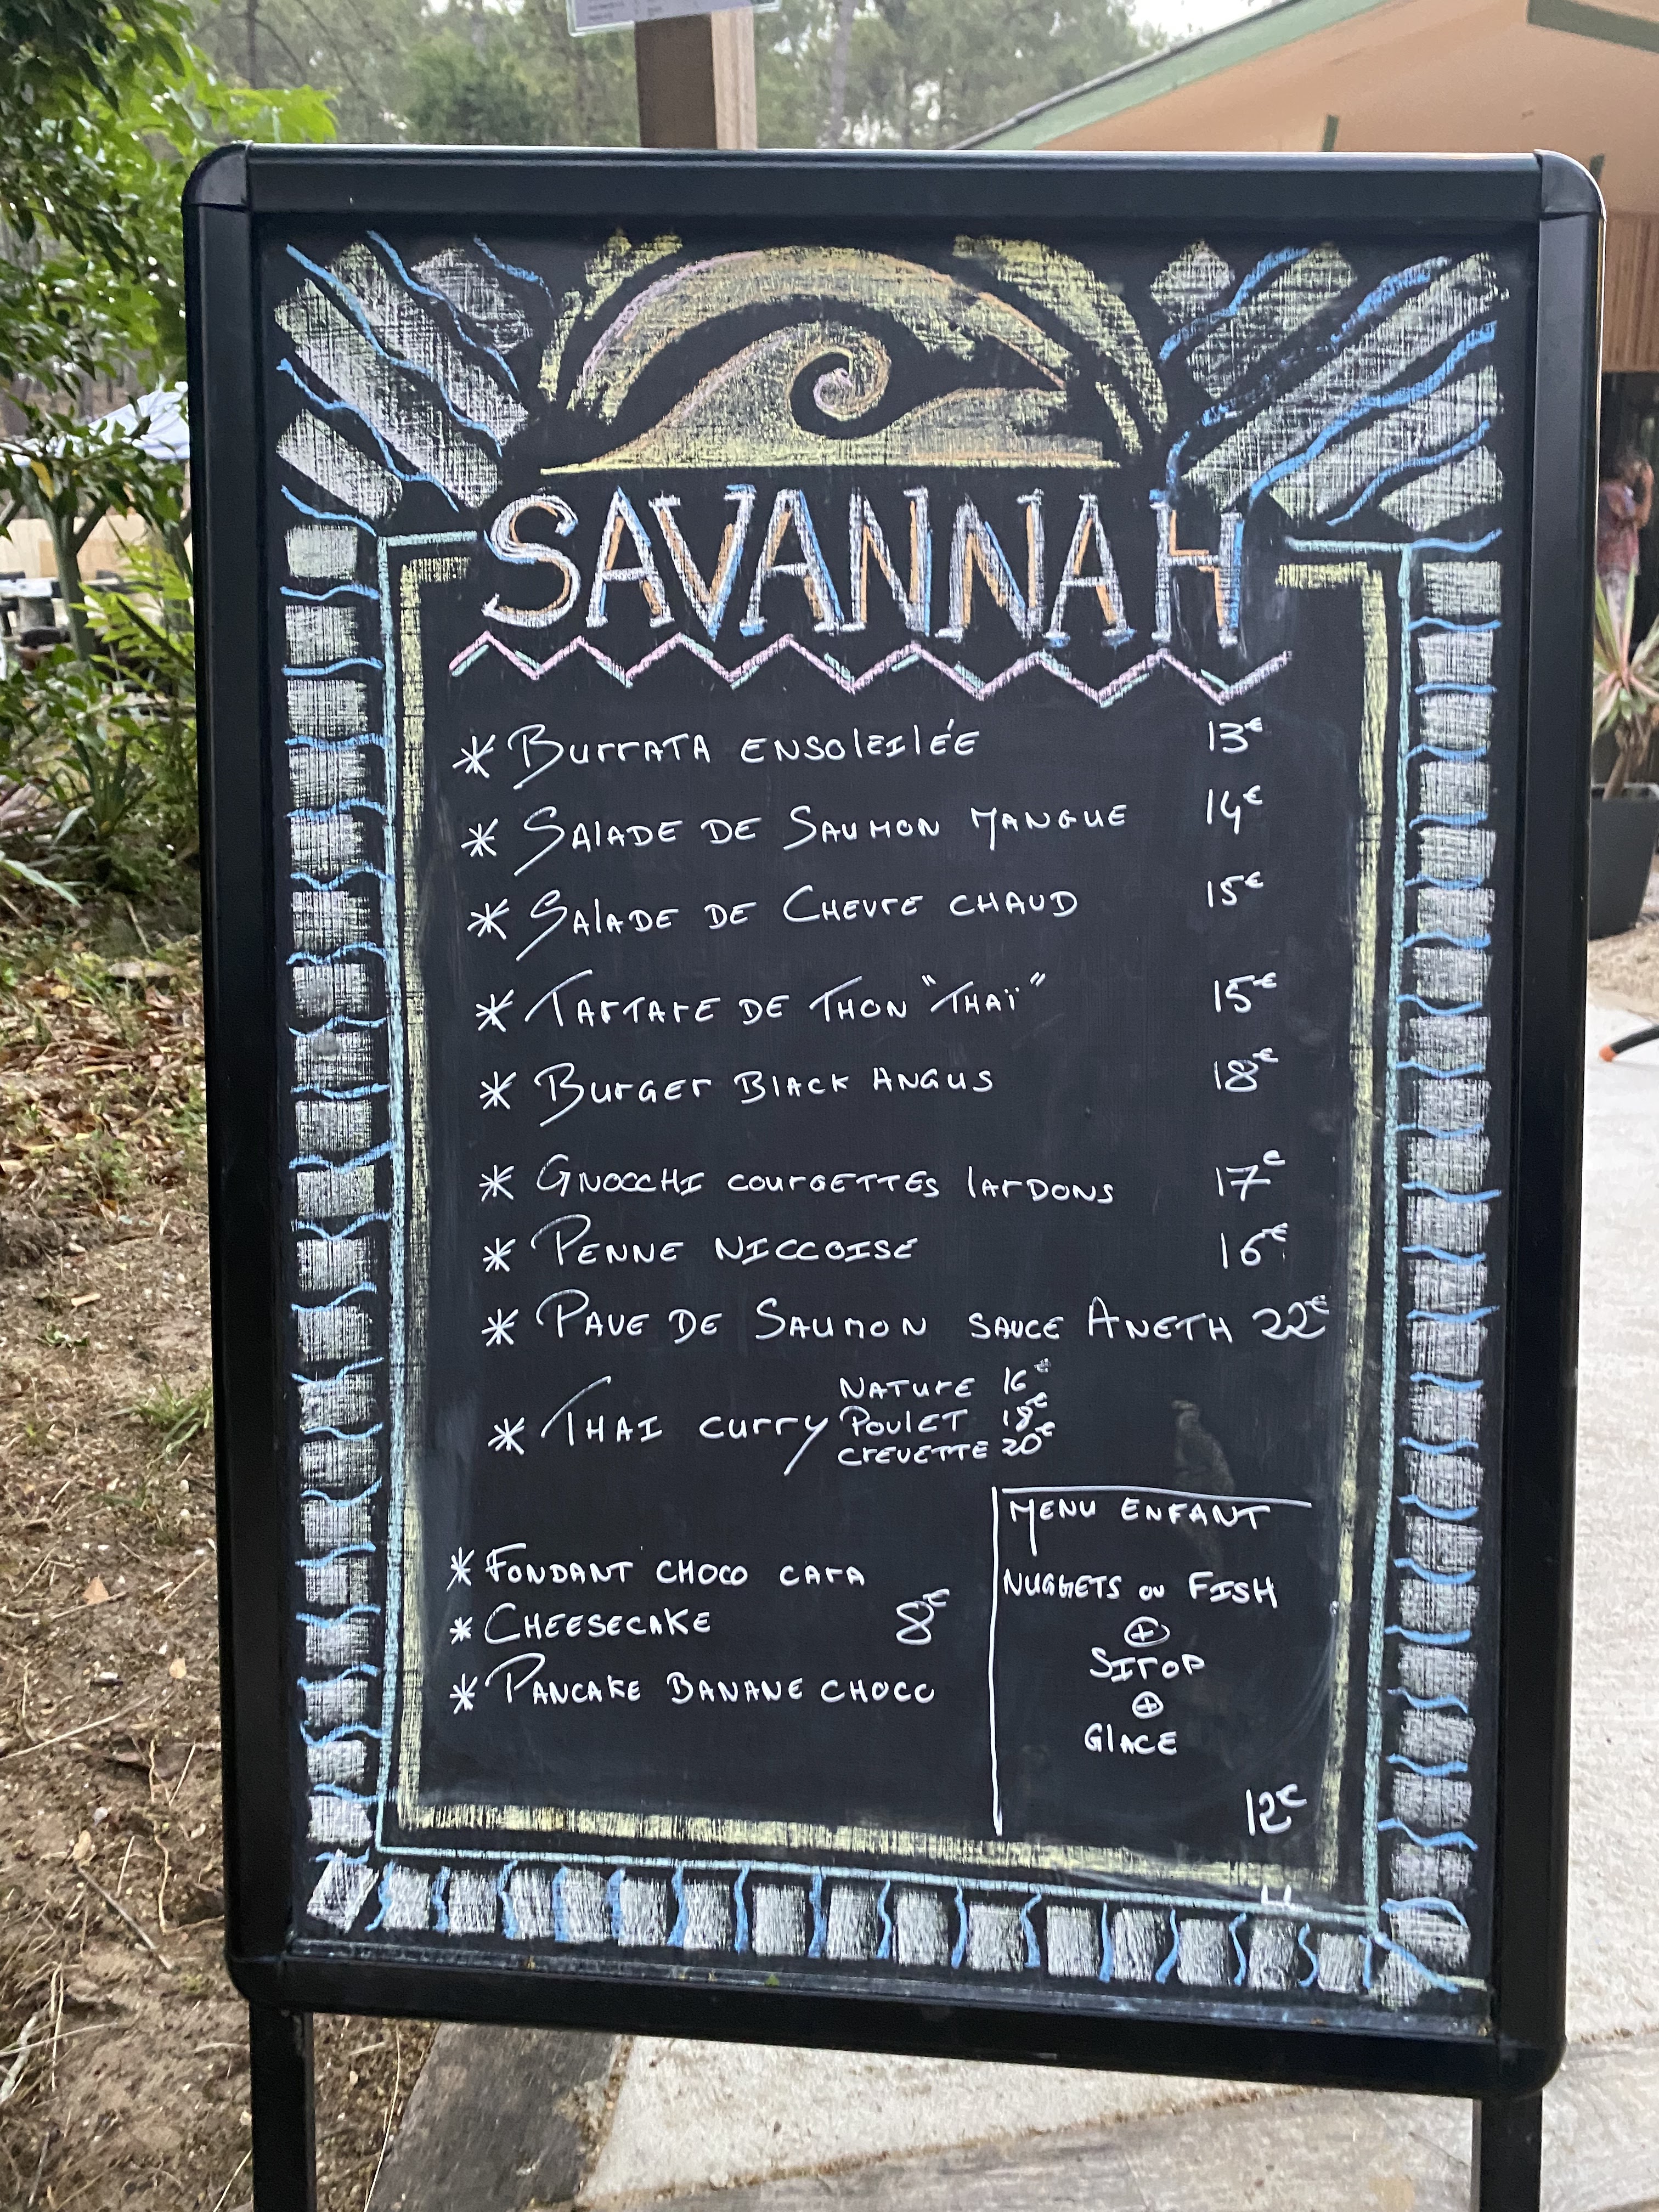 SAVANNAH
* BURRATA ENSOLEILÉE 13€
* SALADE DE SAUMON MANGUE 14€
* SALADE DE CHEVRE CHAUD 15€
* TARTARE DE THON "THAÏ" 15€
* BURGER BLACK ANGUS 18€
* GNOCCHI COURGETTES LARDONS 17€
* PENNE NICCOISE 16€
* PAVE DE SAUMON SAUCE ANETH 22€
NATURE 16€
* THAI CURRY POULET 18€
CREVETTE 20€
* FONDANT CHOCO CARA
* CHEESECAKE 8€
* PANCAKE BANANE CHOCO
MENU ENFANT
NUGGETS OU FISH
+
SIROP
+
GLACE
12€